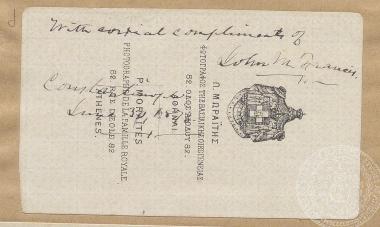 With cordial compliments of
John M. Francis,
Constantinople
Π. ΜΩΡΑΪΤΗΣ
ΦΩΤΟΓΡΑΦΟΣ ΤΗΣ ΒΑΣΙΛΙΚΗΣ ΟΙΚΟΓΕΝΕΙΑΣ
82 ΟΔΟΣ ΑΙΟΛΟΥ 82.
ΑΘΗΝΑΙ.
P. MORAÏTES
PHOTOGRAPHE DE LA FAMILLE ROYALE.
82 RUE D'EOLE 82
ATHÈNES.